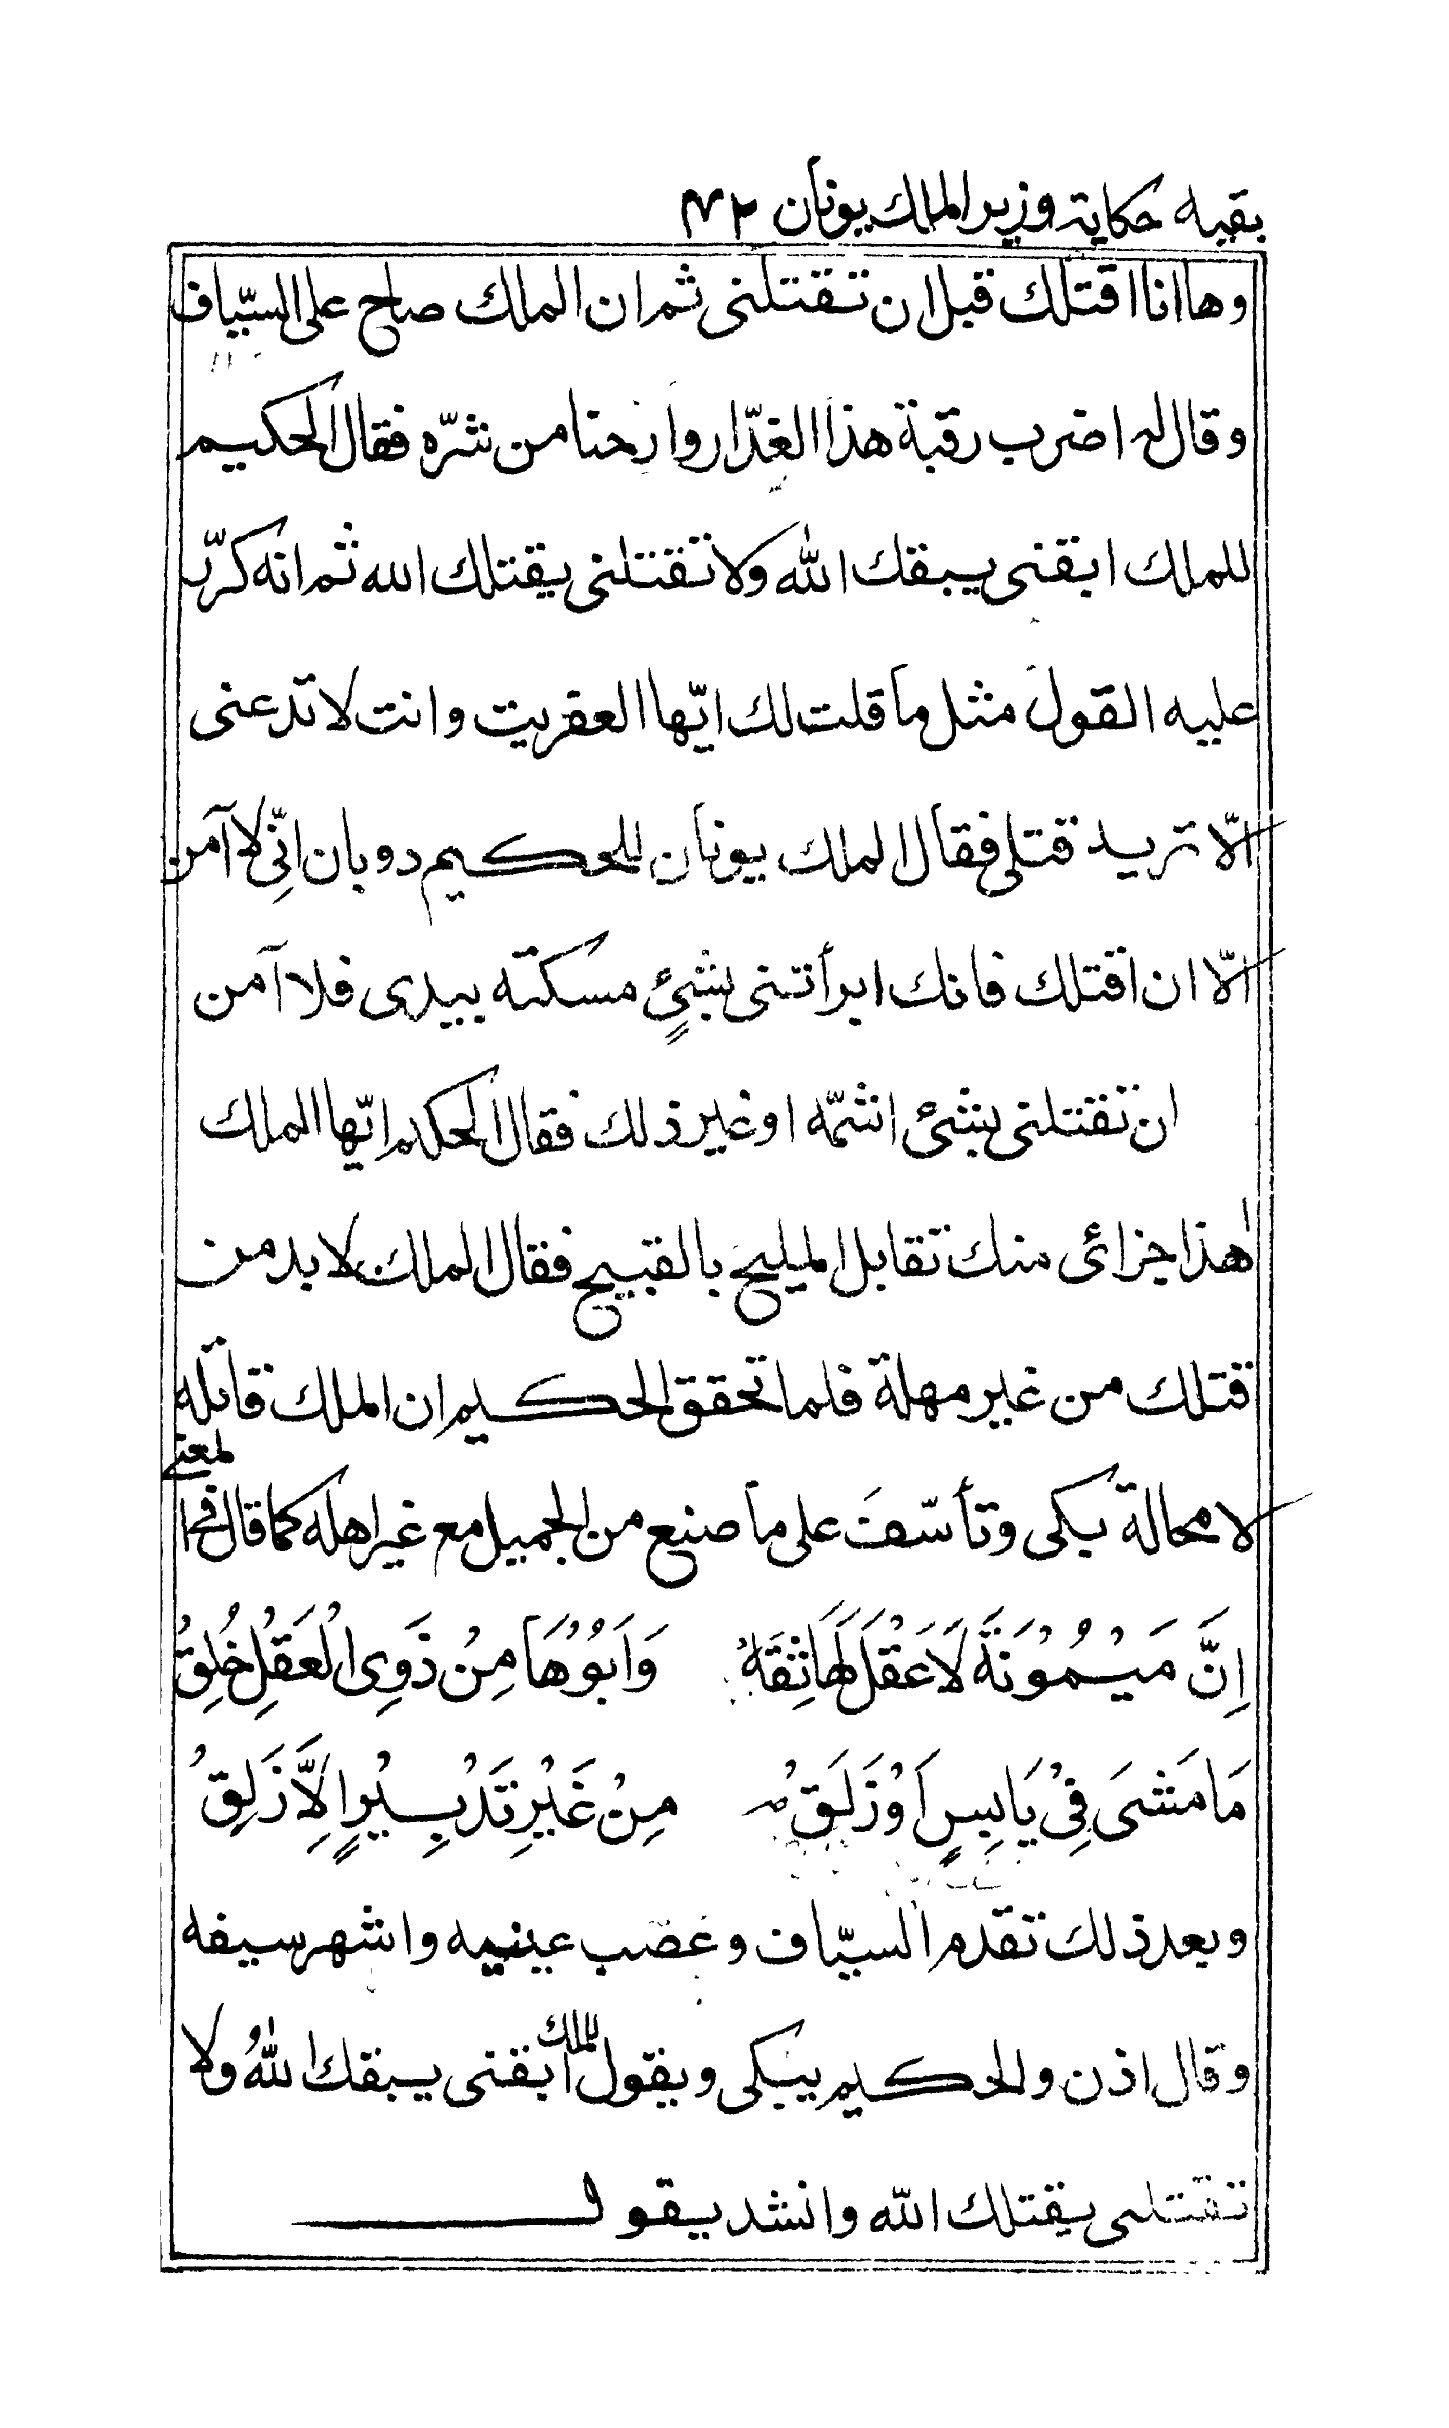 بقيه حكاية وزير الملك يونان ٤٢
وها انا اقتلك قبل ان تقتلنى ثم ان الملك صاح على السيّاف
وقال له اضرب رقبة هذا الغدّار وارحنا من شرّه فقال الحكيم
للملك ابقنى يبقك الله ولا تقتلنى يقتلك الله ثم انه كرّر
عليه القول مثل ما قلت لك ايّها العفريت وانت لا تدعنى
الّا تريد قتلى فقال الملك يونان للحكيم دوبان انّى لا آمن
الّا ان اقتلك فانك ابرأتنى بشئٍ مسكته بيدى فلا آمن
ان تقتلنى بشئ اشمّه او غير ذلك فقال الحكيم ايّها الملك
اهذا جزائى منك تقابل المليح بالقبيح فقال الملك لا بد من
قتلك من غير مهلة فلما تحقق الحكيم ان الملك قاتله
لا محالة بكى وتأسّفَ على ما صنع من الجميل مع غير اهله كما قال فى هذا
المعنى
اِنَّ مَيْمُوْنَةَ لَا عَقْلَ لَهَا ثِقَهْ وَاَبُوْهَا مِنْ ذَوِى الْعَقْلِ خُلِقْ
مَا مَشَى فِىْ يَابِسٍ اَوْ زَلَقٍ مِنْ غَيْرِ تَدْبِيْرٍ اِلَّا زَلِقْ
وبعد ذلك تقدم السيّاف وغصب عينيه واشهر سيفه
وقال اذن والحكيم يبكى ويقول للملك ابقنى يبقك اللهُ ولا
تقتلنى يقتلك الله وانشد يقول